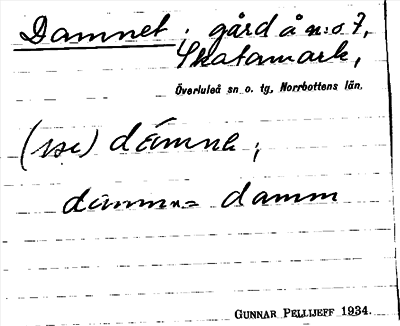 Damnet ; gård å n:o 7,
Skatamark,
Överluleå sn o. tg, Norrbottens län.
dámnə ;
damm = damm
GUNNAR PELLIJEFF 1934.